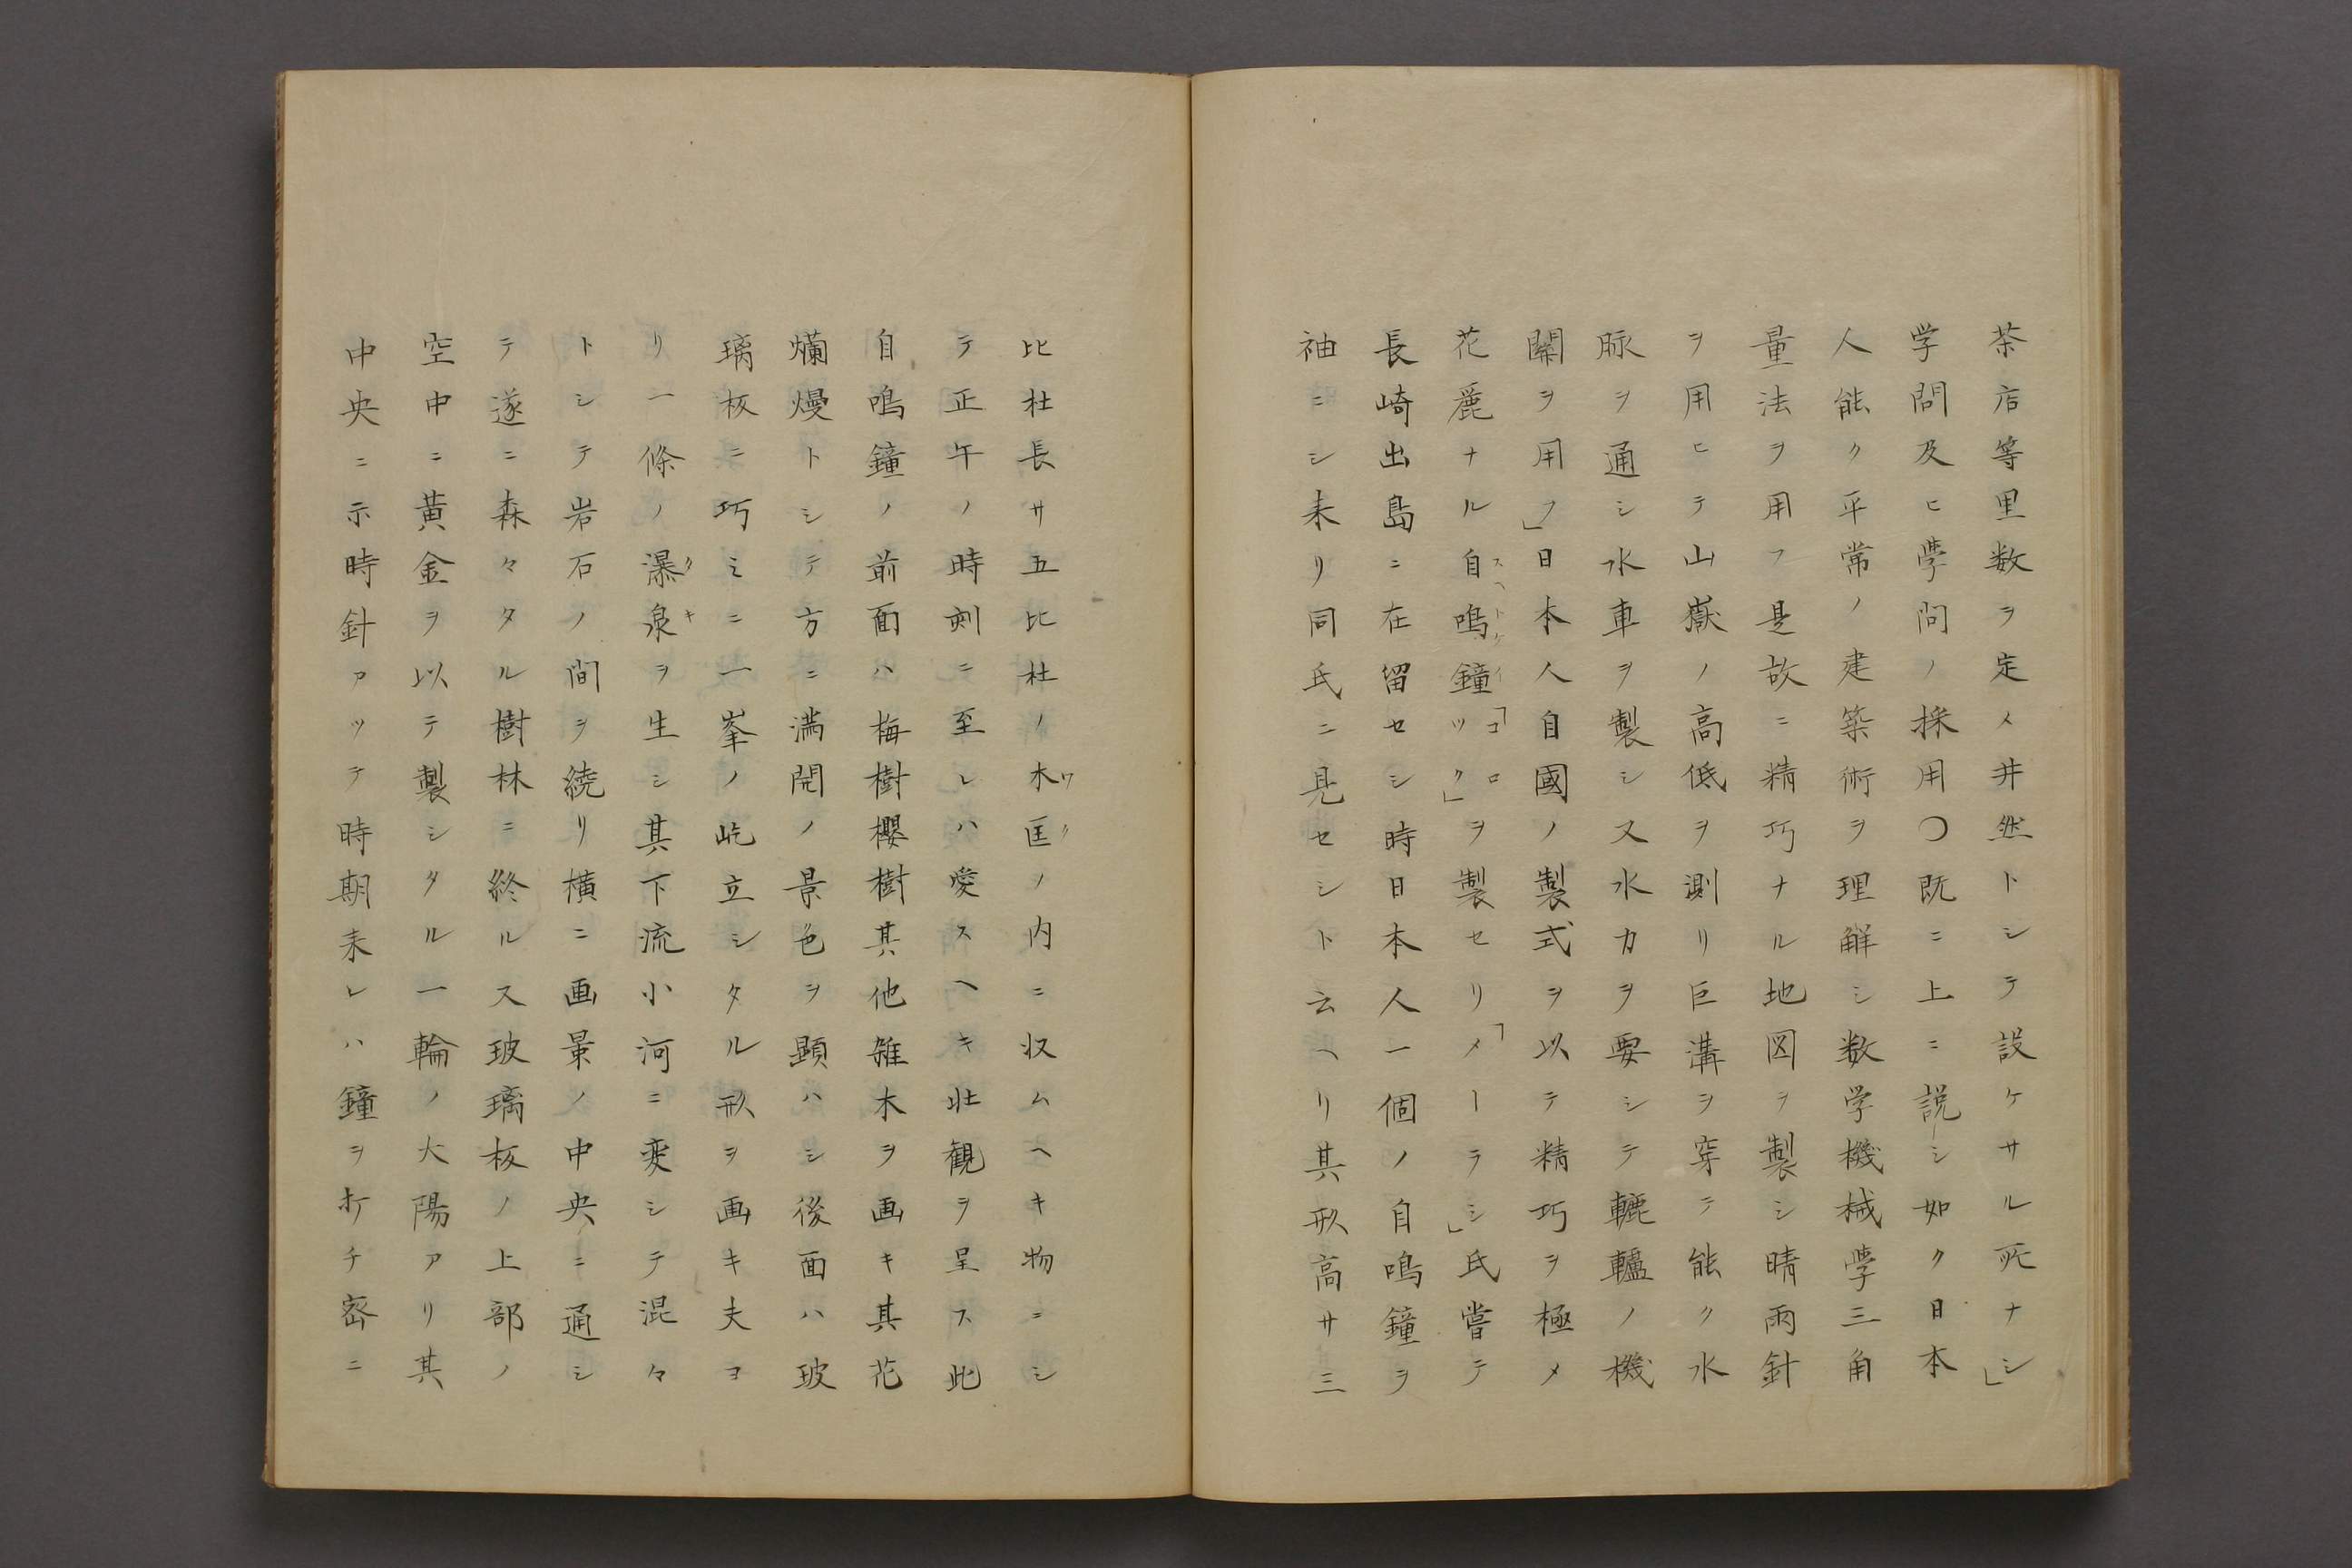 茶店等里数ヲ定メ井然トシテ設ケサル所ナシ」
学問及ヒ學問ノ採用〇既ニ上ニ説シ如ク日本
人能ク平常ノ建築術ヲ理解シ数学機械學三角
量法ヲ用フ是故ニ精巧ナル地図ヲ製シ晴雨針
ヲ用ヒテ山嶽ノ高低ヲ測リ巨溝ヲ穿テ能ク水
脉ヲ通シ水車ヲ製シ又水力ヲ要シテ轆轤ノ機
關ヲ用フ」日本人自國ノ製式ヲ以テ精巧ヲ極メ
花麗ナル自鳴鐘「コロック」ヲ製セリ「メーラシ」氏嘗テ
長崎出島ニ在留セシ時日本人一個ノ自鳴鐘ヲ
袖ニシ来リ同氏ニ見セシト云ヘリ其形高サ三
比杜長サ五比杜ノ木匡ノ内ニ収ムヘキ物ニシ
テ正午ノ時刻ニ至レハ愛スヘキ壮観ヲ呈ス此
自鳴鐘ノ前面ハ梅樹櫻樹其他雑木ヲ画キ其花
爛熳トシテ方ニ満開ノ景色ヲ顕ハシ後面ハ玻
璃板ニ巧ミニ一峯ノ屹立シタル形ヲ画キ夫ヨ
リ一條ノ瀑泉ヲ生シ其下流小河ニ変シテ混々
トシテ岩石ノ間ヲ繞リ横ニ画景ノ中央ニ通シ
テ遂ニ森々タル樹林ニ終ル又玻璃板ノ上部ノ
空中ニ黄金ヲ以テ製シタル一輪ノ大陽アリ其
中央ニ示時針アッテ時期来レハ鐘ヲ打チ密ニ